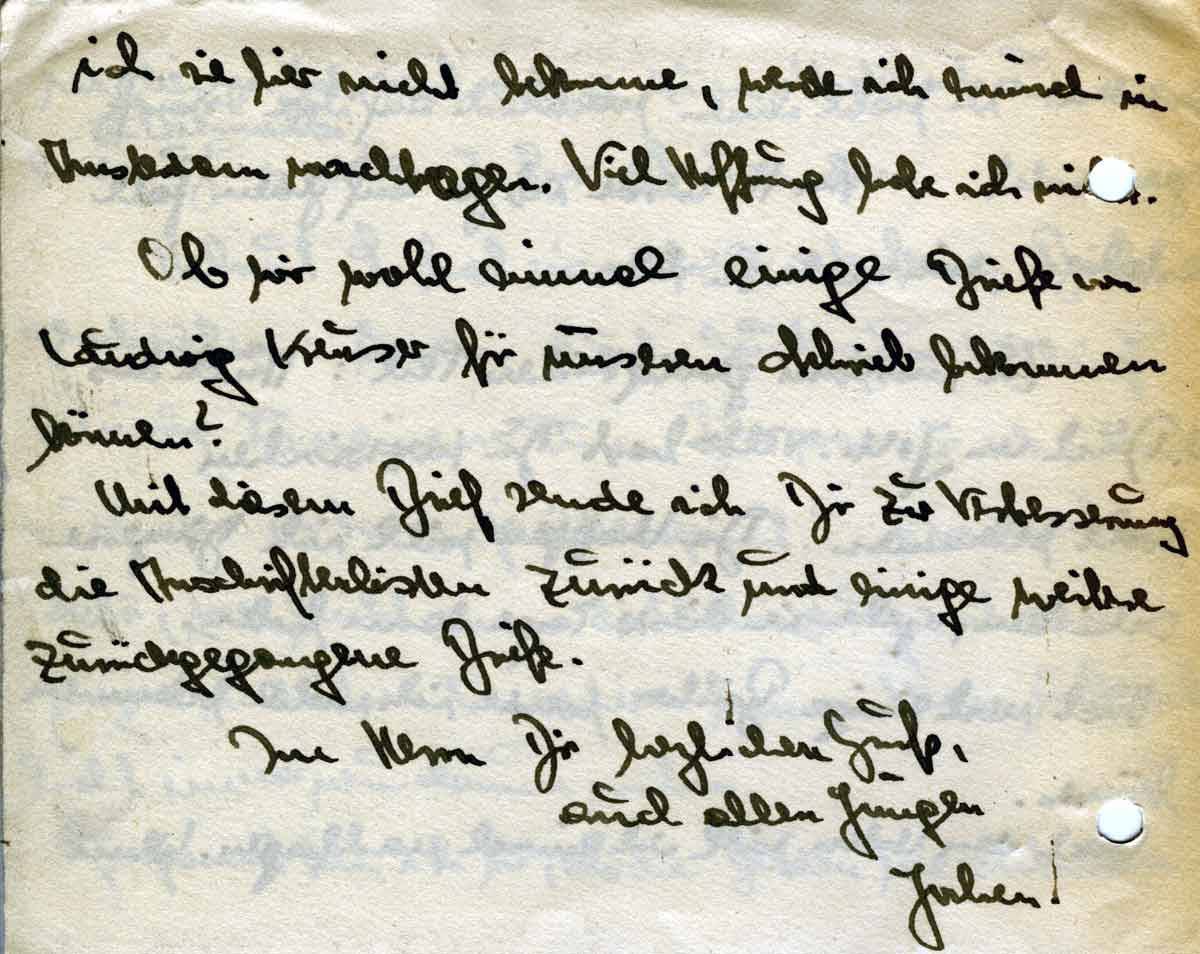 ich sie hier nicht bekomme, werde ich einmal in
Amsterdam nachfragen. Viel Hoffnung habe ich nicht.
Ob wir wohl einmal einige Briefe von
Ludwig für unseren bekommen
können?
Mit diesem Brief sende ich Dir zur Verbesserung
die Anschriftenlisten zurück und einige weitere
zurückgegangene Briefe.
Im Herrn Dir herzlichen Gruß,
auch allen Jungen
Jochen!